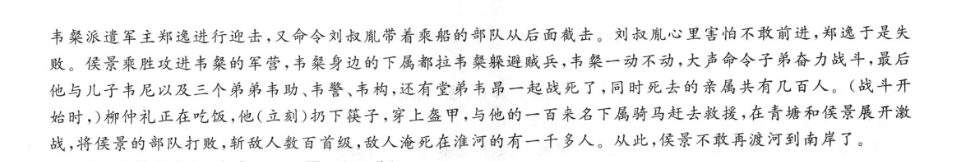 韦粲派遣军主郑逸进行迎击,又命令刘叔胤带着乘船的部队从后面截击。刘叔胤心里害怕不敢前进,郑逸于是失
败。侯景乘胜攻进韦粲的军营,韦粲身边的下属都拉韦粲躲避贼兵,韦粲一动不动,大声命令子弟奋力战斗,最后
他与儿子韦尼以及三个弟弟韦助、韦警、韦构,还有堂弟韦昂一起战死了,同时死去的亲属共有几百人。(战斗开
始时,)柳仲礼正在吃饭,他(立刻)扔下筷子,穿上盔甲,与他的一百来名下属骑马赶去救援,在青塘和侯景展开激
战,将侯景的部队打败,斩敌人数百首级,敌人淹死在淮河的有一千多人。从此,侯景不敢再渡河到南岸了。